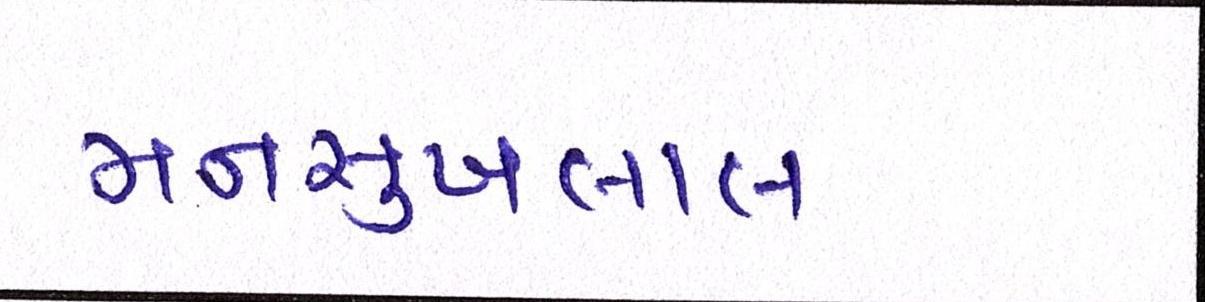 મનસુખલાલ